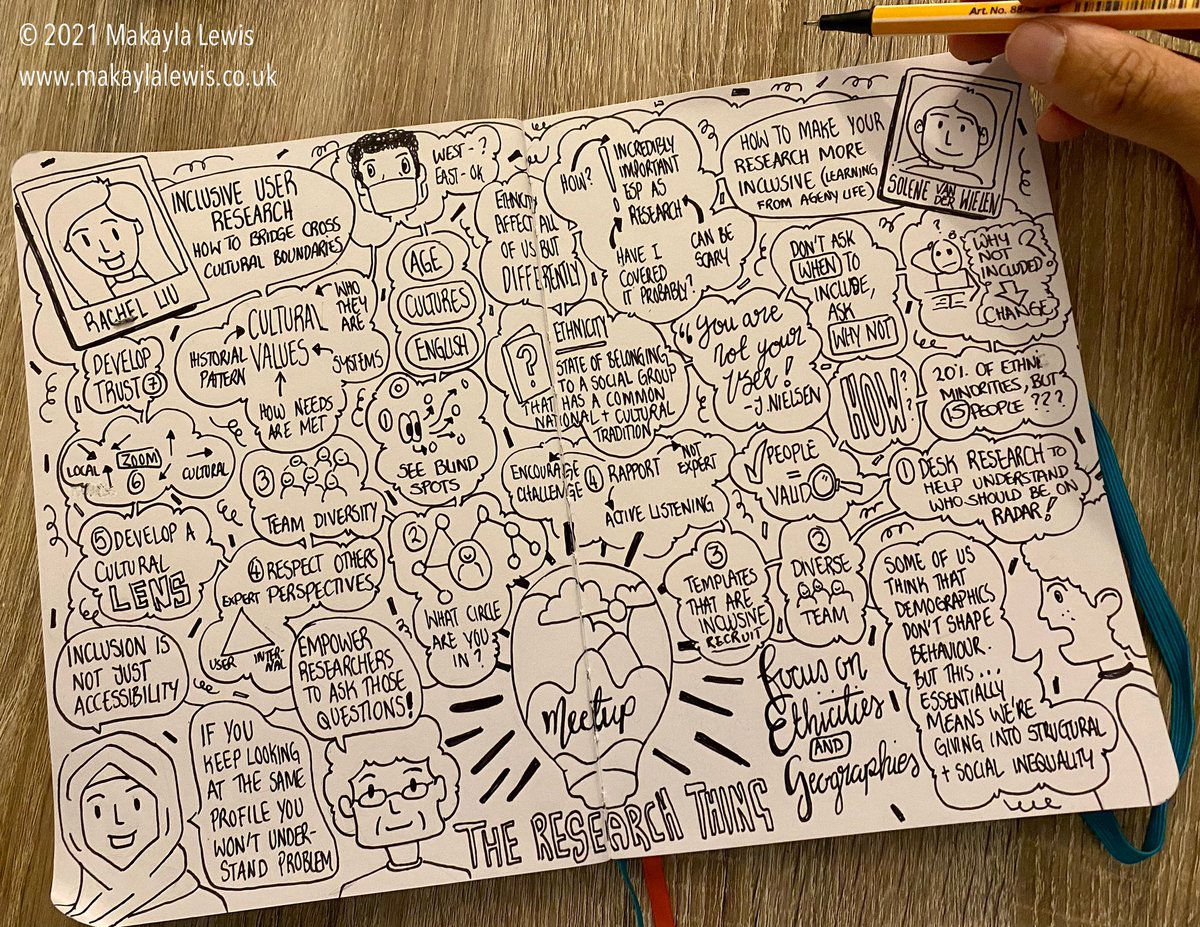 © 2021 Makayla Lewis
www.makaylalewis.co.uk
Art. No. 88
RACHEL LIU
INCLUSIVE USER
RESEARCH
HOW TO BRIDGE CROSS
CULTURAL BOUNDARIES
WEST-?
EAST-OK
AGE
CULTURES
ENGLISH
CULTURAL
VALUES
WHO
THEY
ARE
SYSTEMS
HISTORIAL
PATTERN
HOW NEEDS
ARE MET
DEVELOP
TRUST 7
LOCAL
ZOOM
6
CULTURAL
3
TEAM DIVERSITY
1
SEE BLIND
SPOTS
5 DEVELOP A
CULTURAL
LENS
4 RESPECT OTHERS
PERSPECTIVES
EXPERT
USER
INTER-
NAL
2
WHAT CIRCLE
ARE YOU
IN?
INCLUSION IS
NOT JUST
ACCESSIBILITY
EMPOWER
RESEARCHERS
TO ASK THOSE
QUESTIONS!
IF YOU
KEEP LOOKING
AT THE SAME
PROFILE YOU
WON'T UNDER-
STAND PROBLEM
ETHNICITY
AFFECT ALL
OF US BUT
DIFFERENTLY
HOW?
!
INCREDIBLY
IMPORTANT
ESP AS
RESEARCH
HAVE I
COVERED
IT PROBABLY?
CAN BE
SCARY
HOW TO MAKE YOUR
RESEARCH MORE
INCLUSIVE (LEARNING
FROM AGENY LIFE)
SOLENE VAN
DER WIELEN
?
ETHNICITY
STATE OF BELONGING
TO A SOCIAL GROUP
THAT HAS A COMMON
NATIONAL + CULTURAL
TRADITION
"You are
not your
User!
-J. NIELSEN
DON'T ASK
WHEN TO
INCLUDE,
ASK
WHY NOT
WHY
NOT
INCLUDED?
CHANGE
HOW?
20% OF ETHNI
MINORITIES, BUT
15 PEOPLE ???
ENCOURAGE
CHALLENGE
4 RAPPORT
NOT
EXPERT
ACTIVE LISTENING
PEOPLE
=
VALID
1 DESK RESEARCH TO
HELP UNDERSTAND
WHO SHOULD BE ON
RADAR!
3
TEMPLATES
THAT ARE
INCLUSIVE
RECRUIT
2
DIVERSE
TEAM
SOME OF US
THINK THAT
DEMOGRAPHICS
DON'T SHAPE
BEHAVIOUR.
BUT THIS...
ESSENTIALLY
MEANS WE'RE
GIVING INTO STRUCTURAL
+ SOCIAL INEQUALITY
Meetup
Focus on
Ethicities
AND
Geographies
THE RESEARCH THING